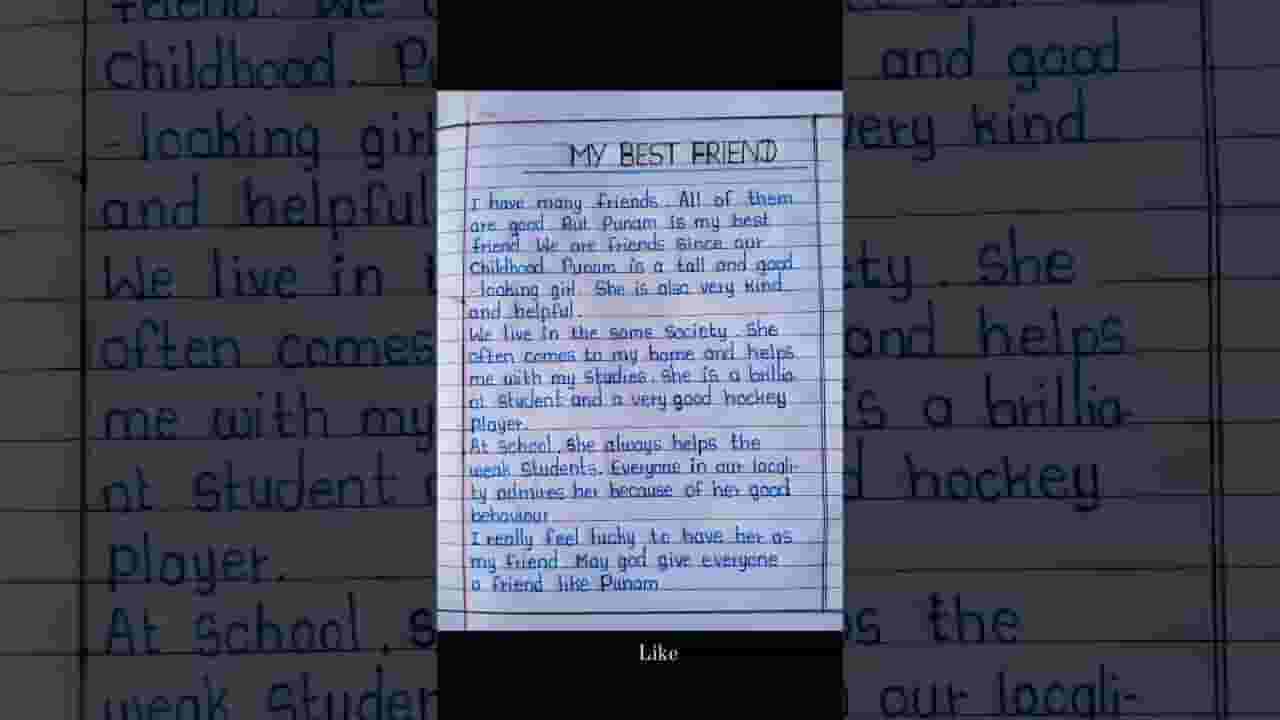 MY BEST FRIEND
I have many friends. All of them
are good. But Punam is my best
friend. We are friends since our
Childhood. Punam is a tall and good
-looking girl. She is also very kind
and helpful.
We live in the same Society. She
often comes to my home and helps
me with my Studies. She is a brillia-
nt Student and a very good hockey
Player.
At School, She always helps the
weak Students. Everyone in our locali-
ty admires her because of her good
behaviour.
I really feel lucky to have her as
my friend. May god give everyone
a friend like Punam
Like